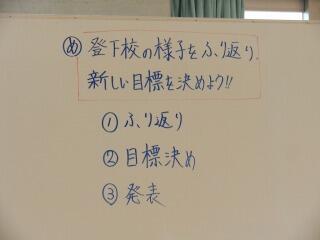 め 登下校の様子をふり返り、
新しい目標を決めよう!!
① ふり返り
② 目標決め
③ 発表